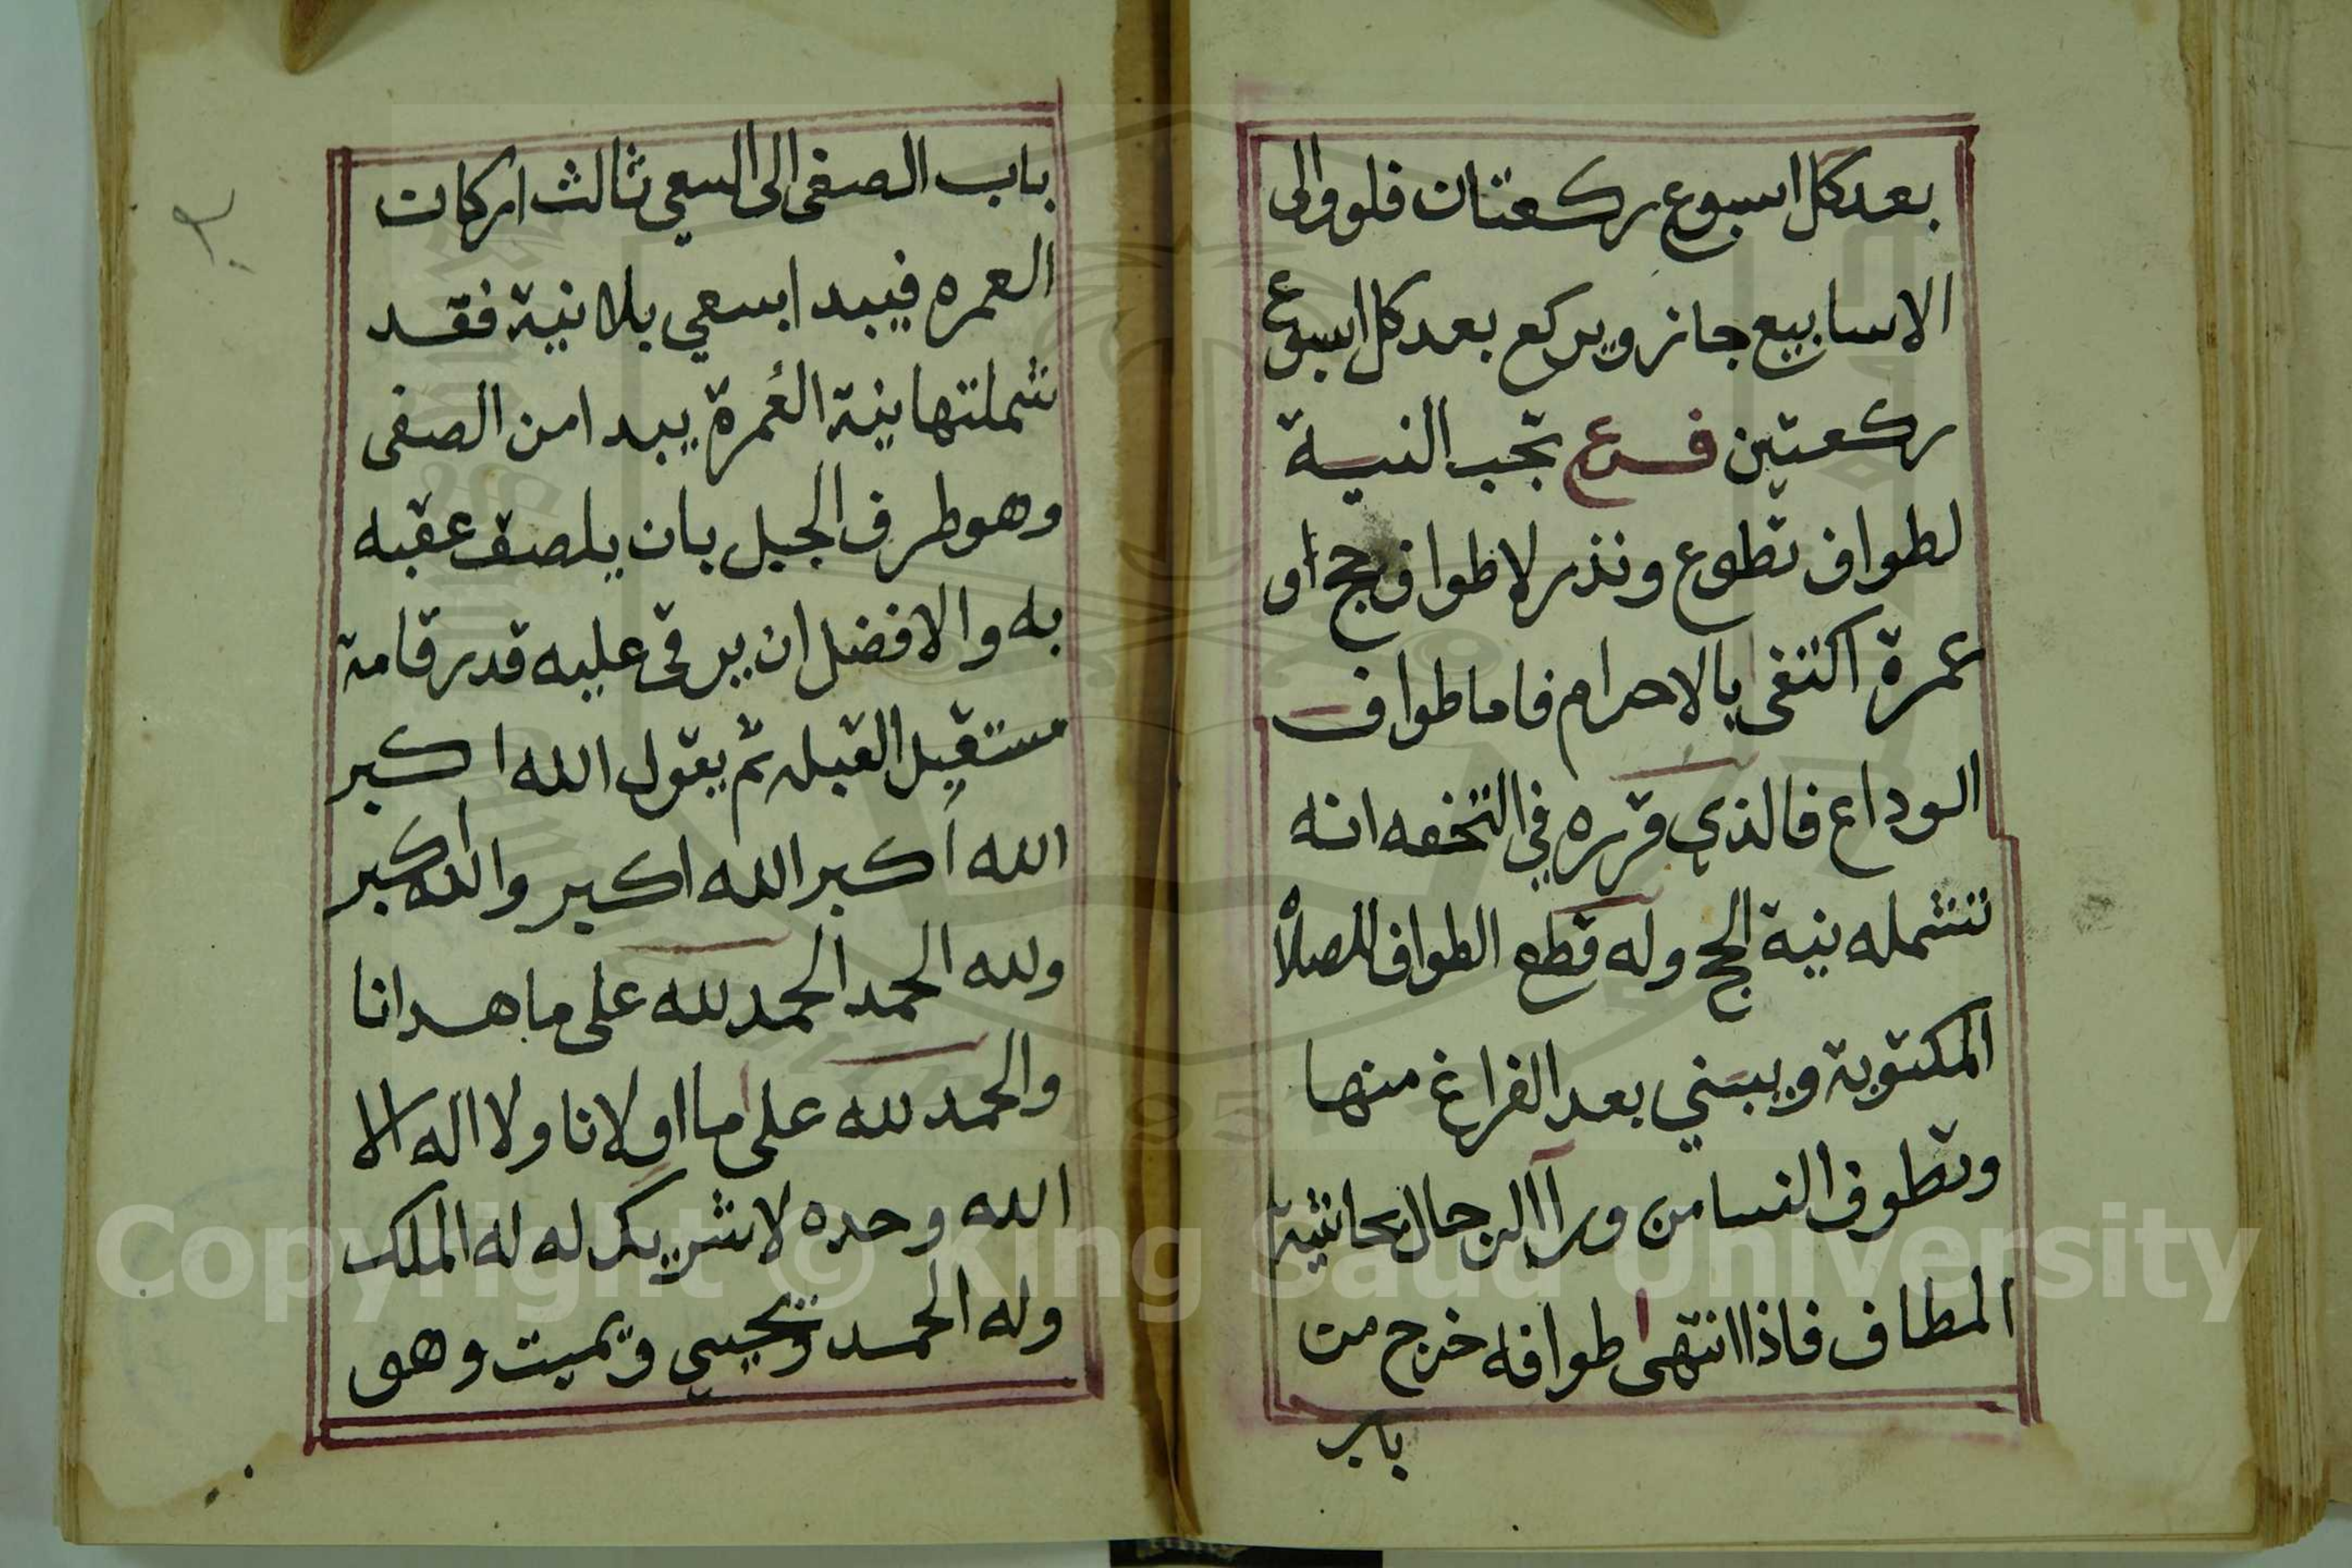 بعد كل اسبوع ركعتان فلو والى
الاسابيع جاز ويركع بعد كل اسبوع
ركعتين فرع تجب النية
لطواف تطوع ونذر لا طواف حج او
عمرة اكتفى بالاحرام فاما طواف
الوداع فالذي قرره في التحفه انه
تشمله نية الحج وله قطع الطواف للصلاة
المكتوبة ويبني بعد الفراغ منها
وتطوف النسا من ورآ الرجال بحاشية
المطاف فاذا انتهى طوافه خرج من
باب
باب الصفى الى السعي ثالث اركان
العمره فيبدا بسعي بلا نية فقد
شملتها نية العُمرة يبدا من الصفى
وهو طرف الجبل بان يلصق عقبه
به والافضل ان يرقى عليه قدر قامة
مستقبل القبله ثم يقول الله اكبر
الله اكبر الله اكبر والله اكبر
ولله الحمد الحمد لله على ما هدانا
والحمد لله على ما اولانا ولا اله الا
الله وحده لا شريك له له الملك
وله الحمد ويحيي ويميت وهو
Copyright © King Saud University
1957